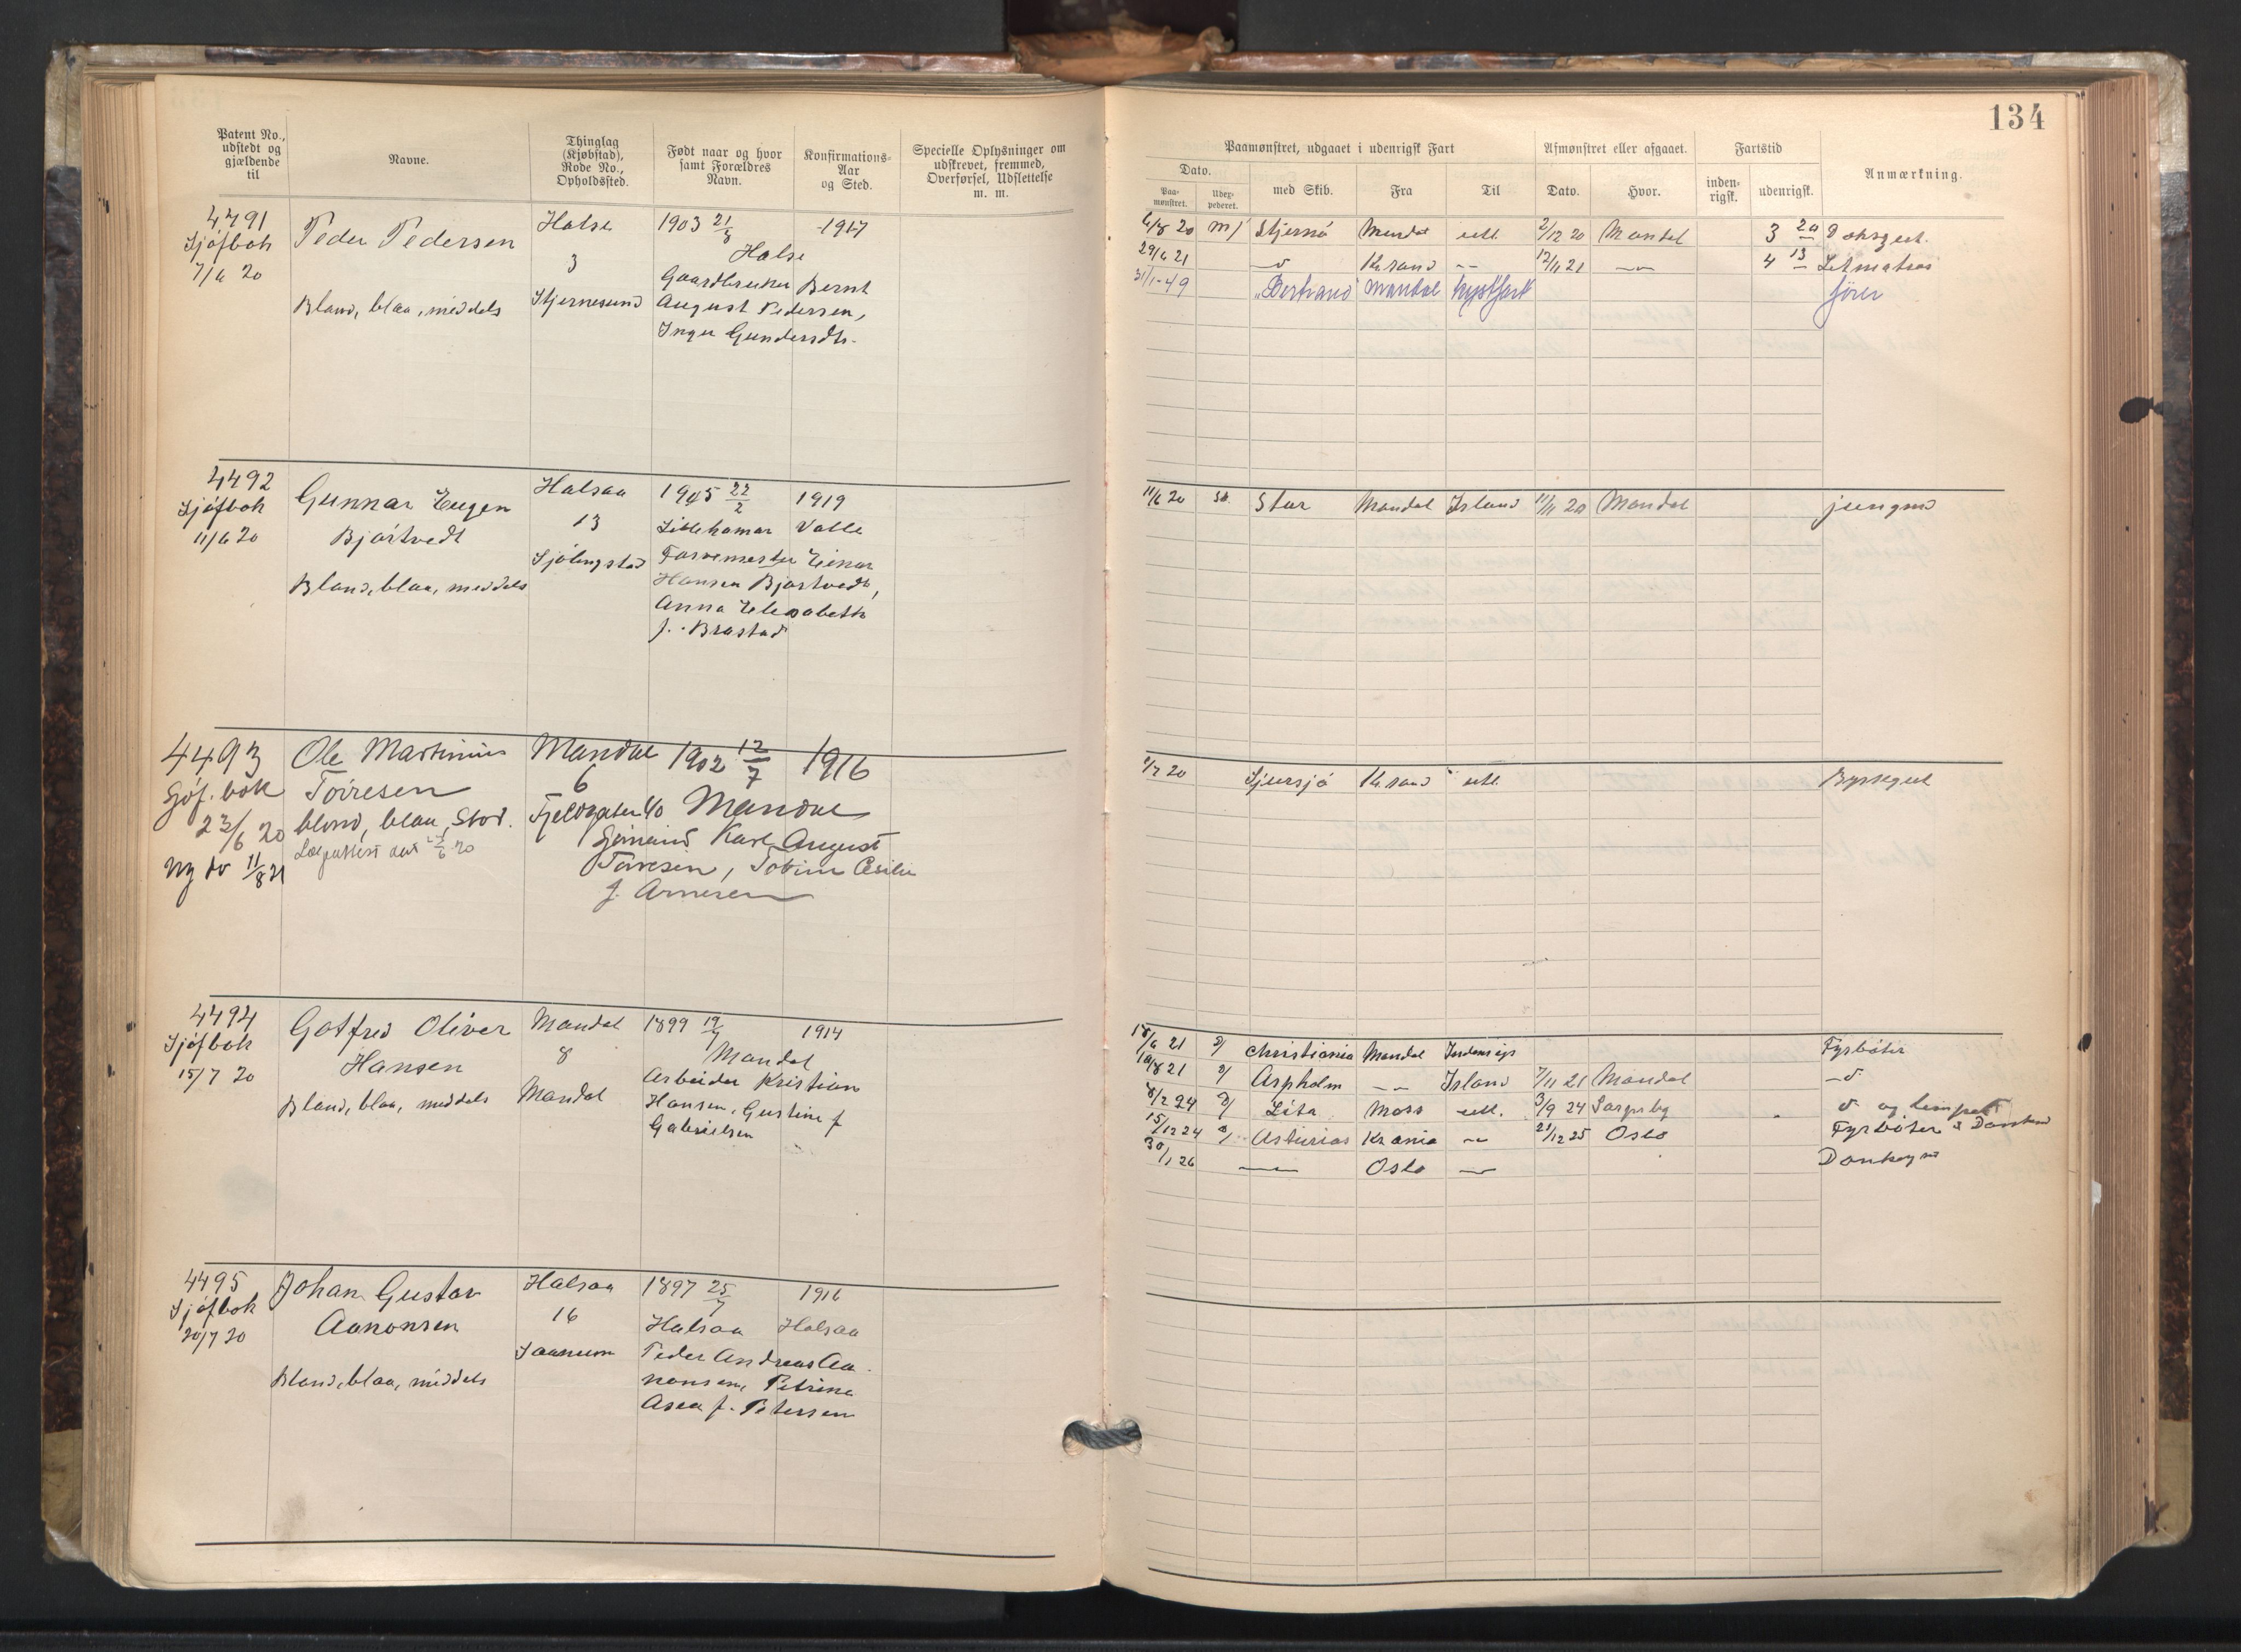 134
Patent No., udstedt og gjældende til
Navne.
Thinglag (Kjøbstad), Rode No., Opholdssted.
Født naar og hvor samt Forældres Navn.
Konfirmations-Aar og Sted.
Specielle Oplysninger om udskrevet, fremmed, Overførsel, Udslettelse m. m.
Paamønstret, udgaaet i udenrigsk Fart
Afmønstret eller afgaaet.
Fartstid
Anmærkning.
Dato.
Paa-mønstret.
med Skib.
Fra
Til
Dato.
Hvor.
inden-rigsk.
udenrigsk.
4491 Halse 1903 21/8 1917
Sjøfbok Peder Pedersen
7/6 20 3 Halse
Gaardbruker Bernt
Bland, blaa, middels Stjernesund August Pedersen,
Inger Gundersdtr.
6/8 20 m/ Stjernø Mandal utl. 2/12 20 Mandal 3 20
29/6 21 —"— Kr.sand —"— 12/11 21 —"— 4 13 Letmatros
31/1-49 "Bertrand" Mandal kystfart fører
4492 Halsaa 1905 22/2 1919
Sjøfbok Gunnar Eugen 13 Lillehamar Valle
11/6 20 Bjørtvedt
Sjølingstad Farvemester Einar
Bland, blaa, middels Hansen Bjørtvedt,
Anna Elisabeth
f. Brastad
11/6 20 Sk. Star Mandal Island 11/11 20 Mandal jungmd
4493 Ole Martinius Mandal 1902 12/7 1916
Sjøf. bok Torresen 6
23/6 20 blond, blaa, Stor. Fjeldgaten 40 Mandal
Sømand Karl August
Ny do 11/8 21 Torresen, Tobine Cesilie
f. Arnesen
Sjursjø Kr.sand utl. Byssegut
4494 Gotfred Oliver Mandal 1899 19/7 1914
Sjøfbok Hansen 8 Mandal
15/7 20 Arbeider Kristian
Bland, blaa, middels Mandal Hansen, Gustine f
Gabrielsen
18/6 21 D/ Christiania Mandal Indenrigs Fyrbøter
10/8 21 D/ Aspholm —"— Island 7/11 21 Mandal —"—
8/2 24 D/ Lita Moss utl. 3/9 24 Sarpsbg d og lemper
15/12 24 D/ Asturias Kr.ania —"— 21/12 25 Oslo Fyrbøter & Donkm
30/1 26 —"— Oslo —"— Donkeym
4495 Johan Gustav Halsaa 1897 25/7 1916
Sjøfbok Aanonsen 16 Halsaa Halsaa
20/7 20 Saanum Peder Andreas Aa-
Bland, blaa, middels nonsen, Petrine
Asea f. Petersen